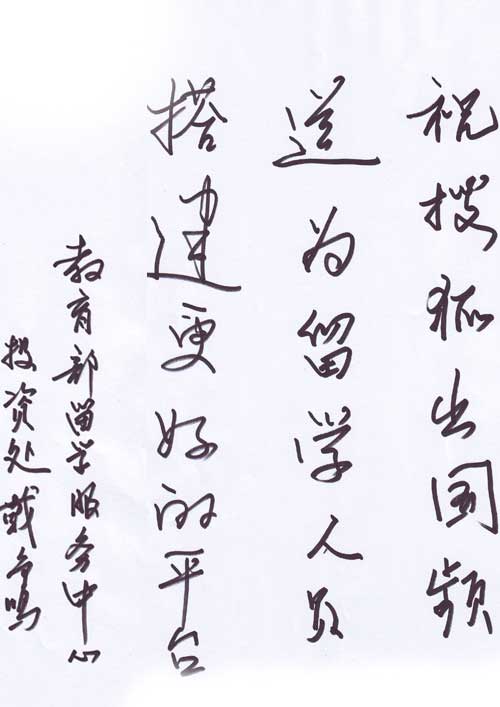 祝搜狐出国频
道为留学人员
搭建更好的平台
教育部留学服务中心
投资处戴争鸣